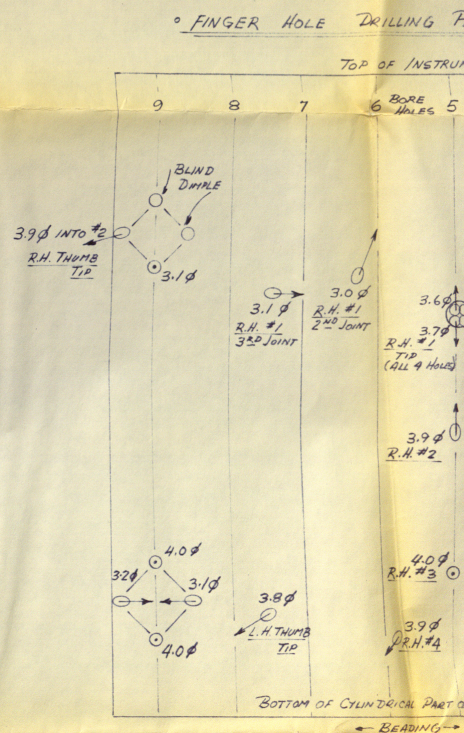 FINGER HOLE DRILLING
TOP OF INSTRUM
9 8 7 6 BORE HOLES 5
BLIND
DIMPLE
3.9∅ INTO #2
R.H. THUMB
TIP
3.1∅
3.1∅
R.H. #1
3RD JOINT
3.0∅
R.H. #1
2ND JOINT
3.6∅
3.7∅
R.H. #1
TIP
(ALL 4 HOLES)
3.9∅
R.H. #2
4.0∅
3.2∅
3.1∅
4.0∅
3.8∅
L.H. THUMB
TIP
4.0∅
R.H. #3
3.9∅
R.H. #4
BOTTOM OF CYLINDRICAL PART
← BEADING →